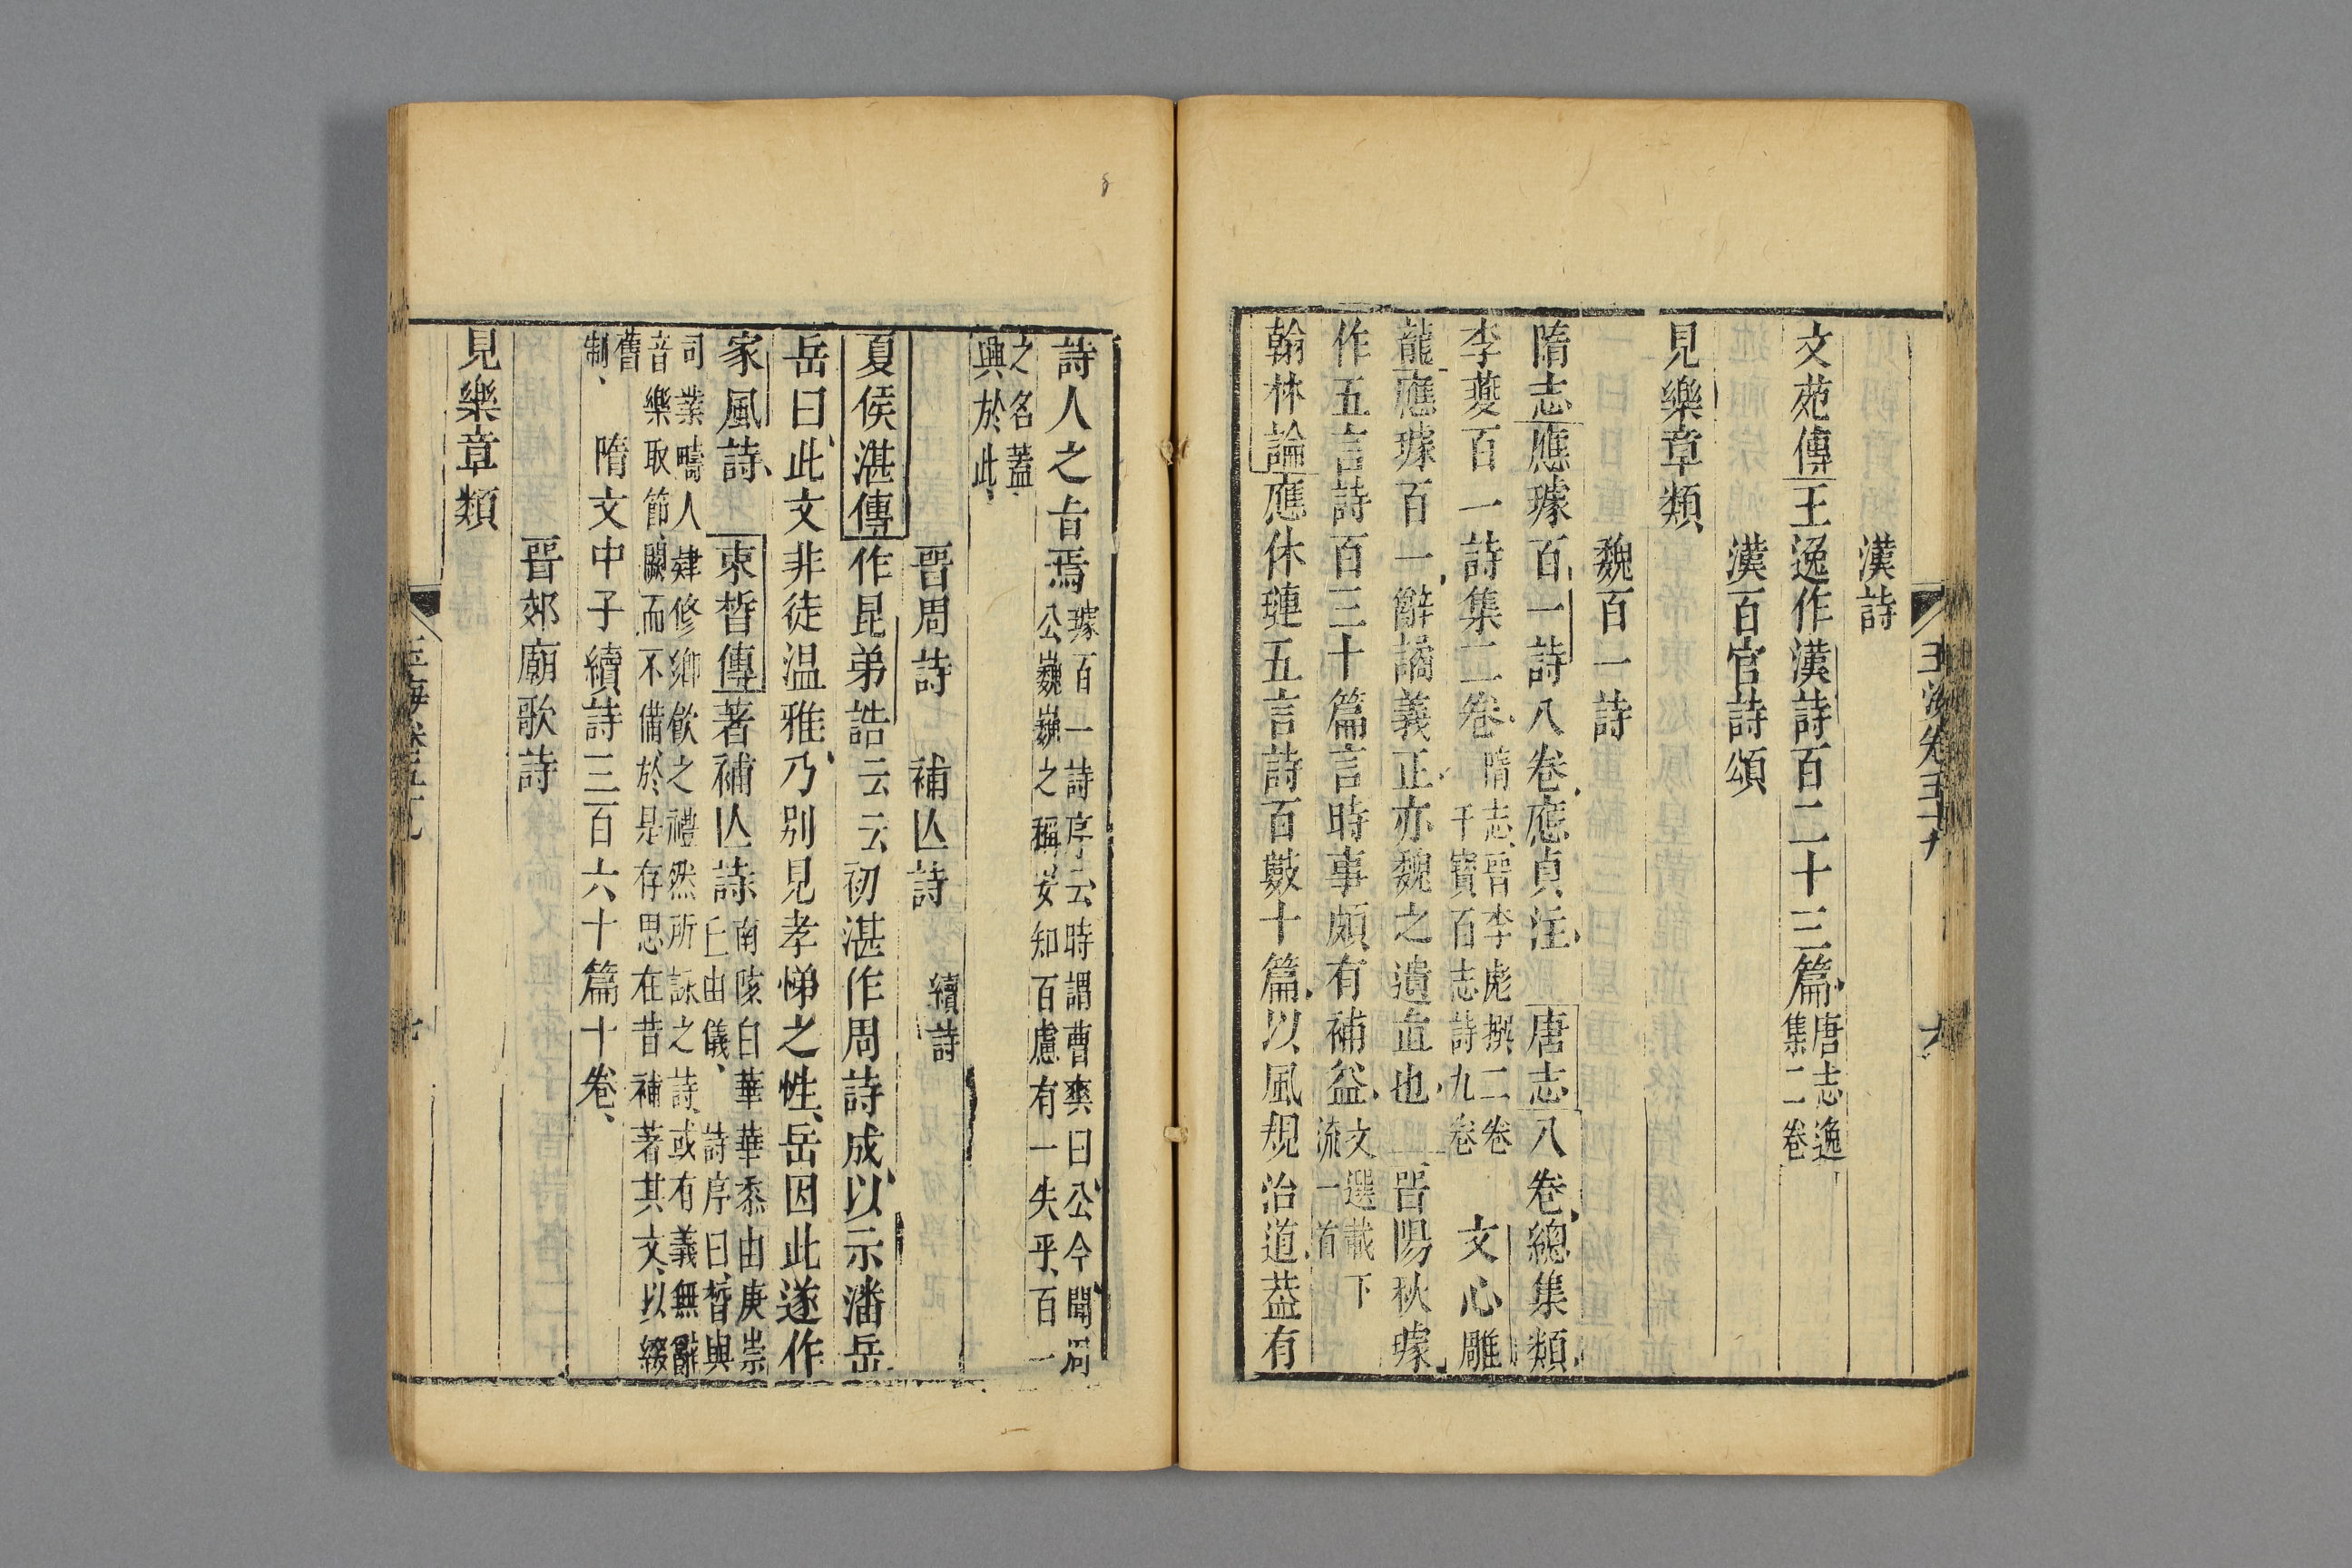 玉海卷五十九
漢詩
文苑傳王逸作漢詩百二十三篇唐志逸集二卷
漢百官詩頌
見樂章類
魏百一詩
隋志應璩百一詩八卷應貞注 唐志八卷總集類
李夔百一詩集二卷隋志晉李彪撰二卷干寶百志詩九卷 文心雕
龍應璩百一辭譎義正亦魏之遺直也 晉陽秋璩
作五言詩百三十篇言時事頗有補益文選載下流一首
翰林論應休璉五言詩百數十篇以風規治道蓋有
詩人之旨焉璩百一詩序云時謂曹爽曰公今聞周公巍巍之稱安知百慮有一失乎百一
之名蓋興於此
晉周詩 補亾詩 續詩
夏侯湛傳作昆弟誥云云初湛作周詩成以示潘岳
岳曰此文非徒温雅乃別見孝悌之性岳因此遂作
家風詩 束晳傳著補亾詩南陔白華華黍由庚崇丘由儀 詩序曰晳與
司業疇人肄修鄉飲之禮然所詠之詩或有義無辭音樂取節闕而不備於是存思在昔補著其文以綴
舊制 隋文中子續詩三百六十篇十卷
晉郊廟歌詩
見樂章類
玉海卷五十九